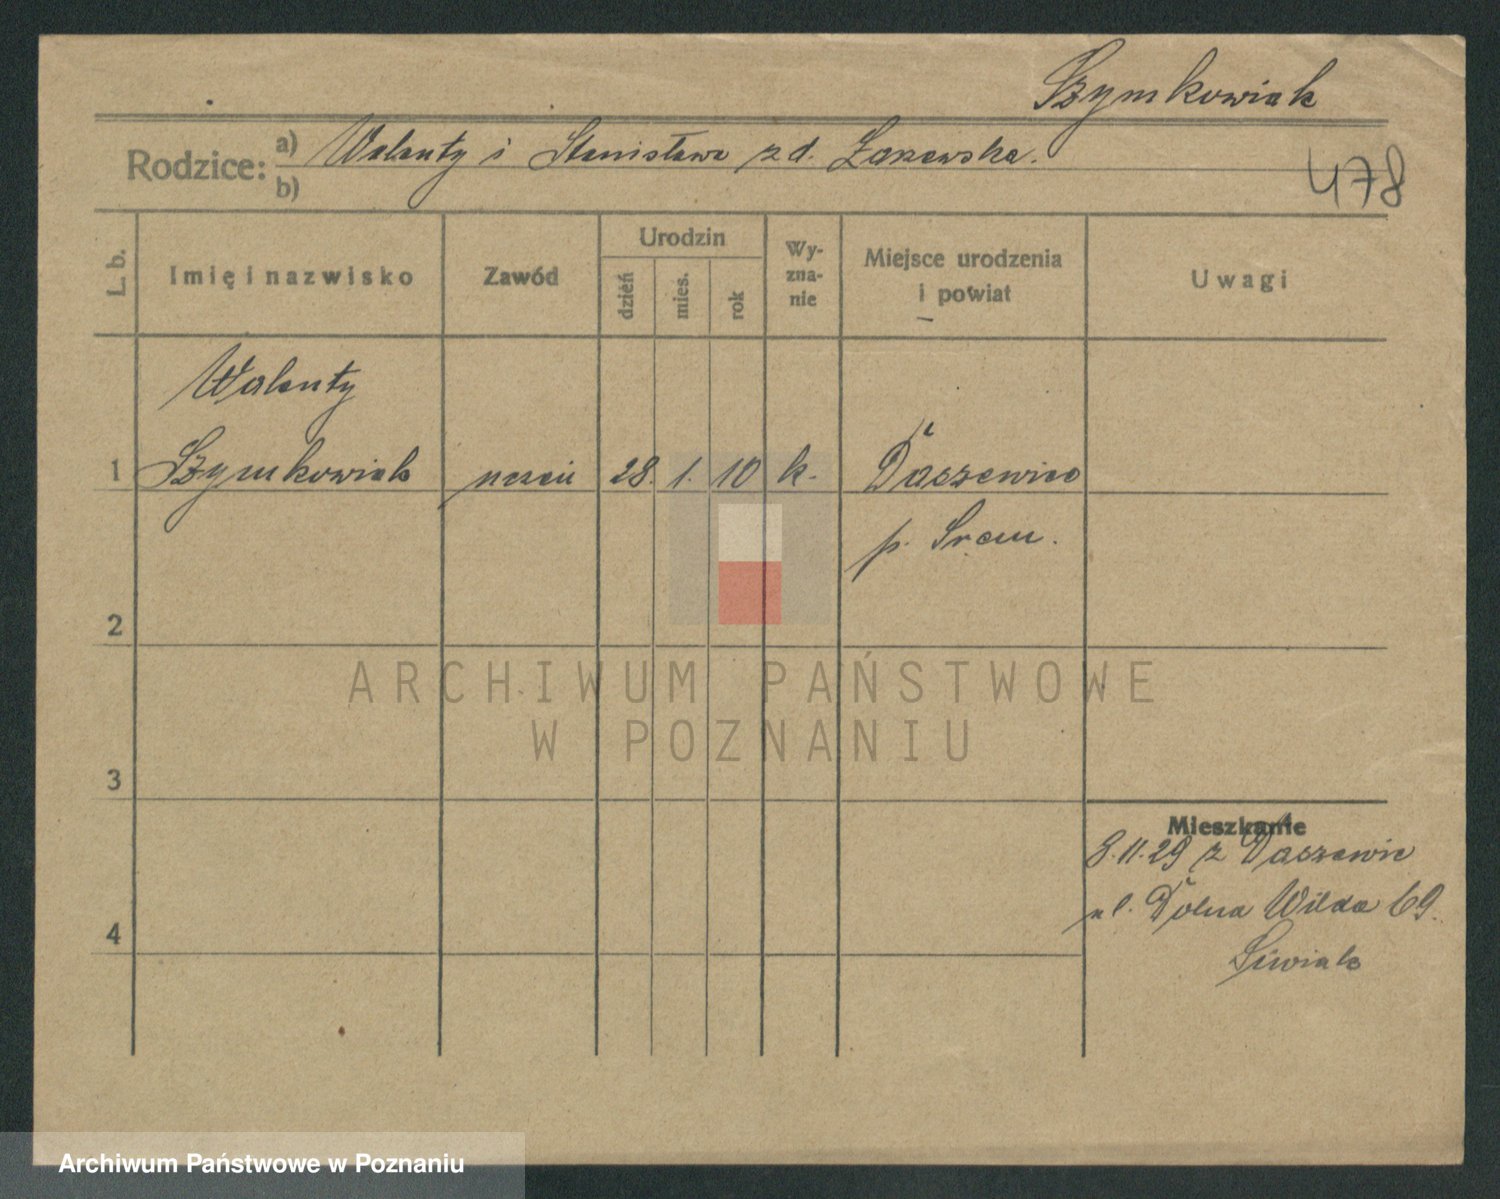 Szymkowiak
Rodzice: a) Walenty i Stanisława z d. Łazewska.
b)
478
L. b.
Imię i nazwisko
Zawód
Urodzin
dzień
mies.
rok
Wy-
zna-
nie
Miejsce urodzenia
i powiat
Uwagi
Walenty
1 Szymkowiak uczeń 28. 1. 10 k. Daszewice
p. Śrem.
2
ARCHIWUM PAŃSTWOWE
W POZNANIU
3
Mieszkanie
8.11.29 z Daszewic
ul. Dolna Wilda 69.
4
Siwiak
Archiwum Państwowe w Poznaniu